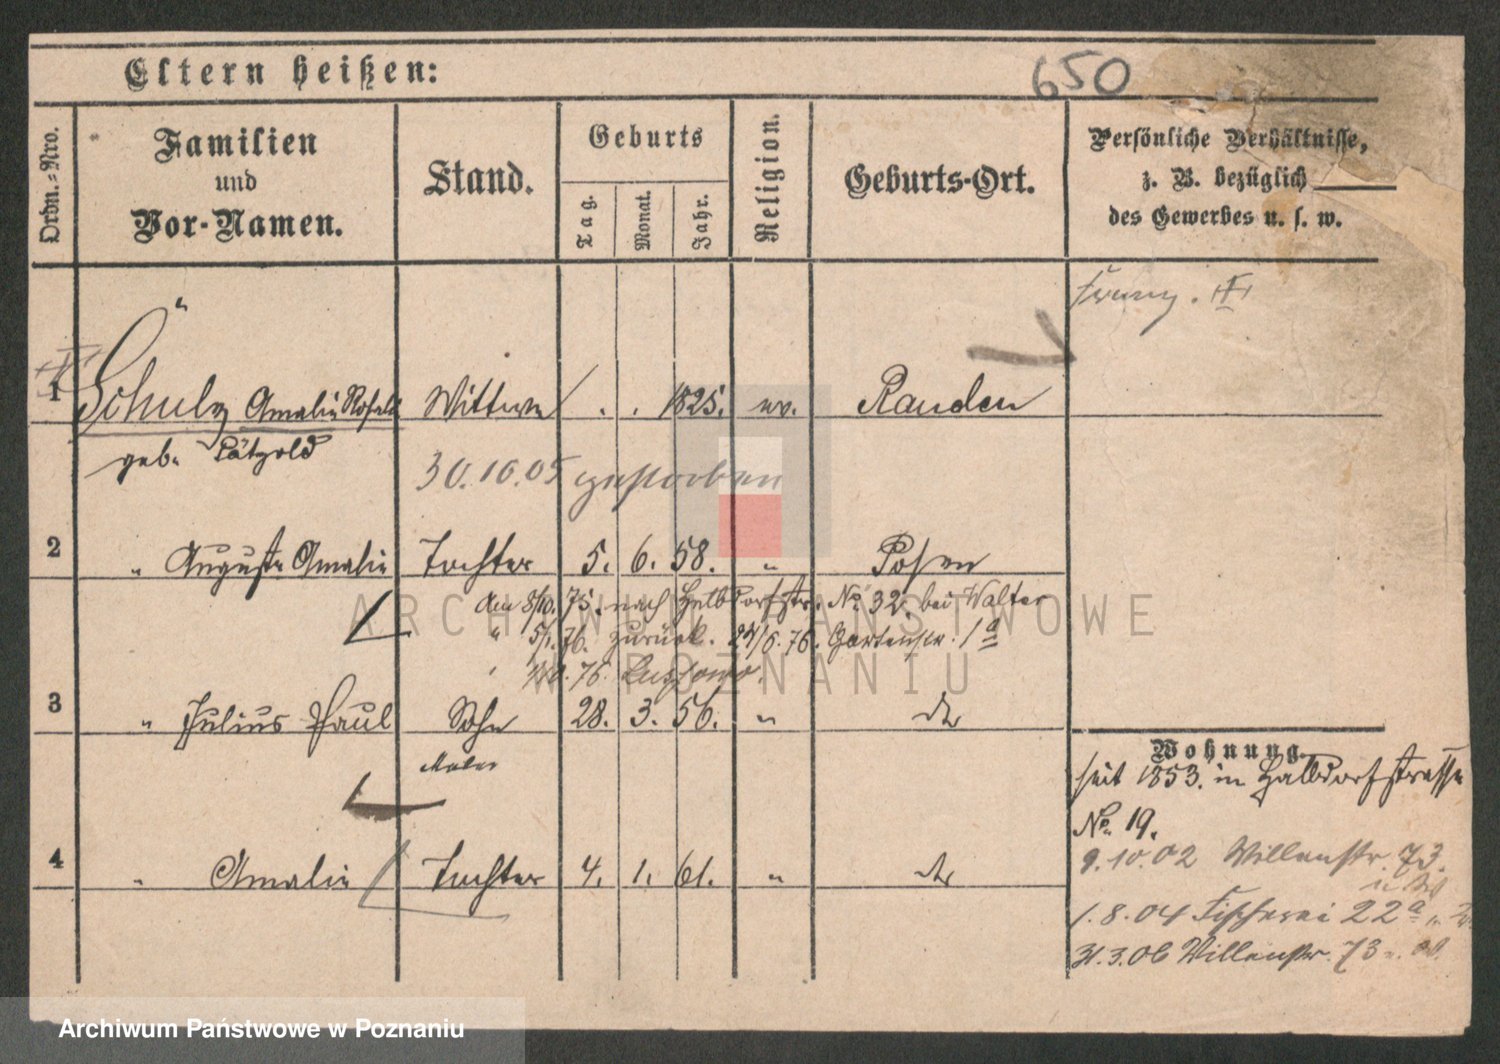 Eltern heißen:
650
Ordn.-Nro.
Familien
und
Vor-Namen.
Stand.
Geburts
Tag.
Monat.
Jahr.
Religion.
Geburts-Ort.
Persönliche Verhältnisse,
z. B. bezüglich
des Gewerbes u. s. w.
1 Schulz Amalie Rosalie Wittwe 1825. ev. Rauden
geb. Pätzold
30.10.05 gestorben
2 " Auguste Amalie Tochter 5. 6. 58. " Posen
Am 8/10. 75. nach Halbdorfstr. No. 32. bei Walter
" 5/1. 76. zurück. 24/6. 76. Gartenstr. 1a
3 " Julius Paul Sohn 28. 3. 56. " do
Maler
4 " Amalie Tochter 4. 1. 61. " do
Wohnung.
seit 1853. in Halbdorfstrasse
No. 19.
9.10.02 73
1.8.04 Fischerei 22a
31.3.06 73
ARCHIWUM PAŃSTWOWE
W POZNANIU
Archiwum Państwowe w Poznaniu